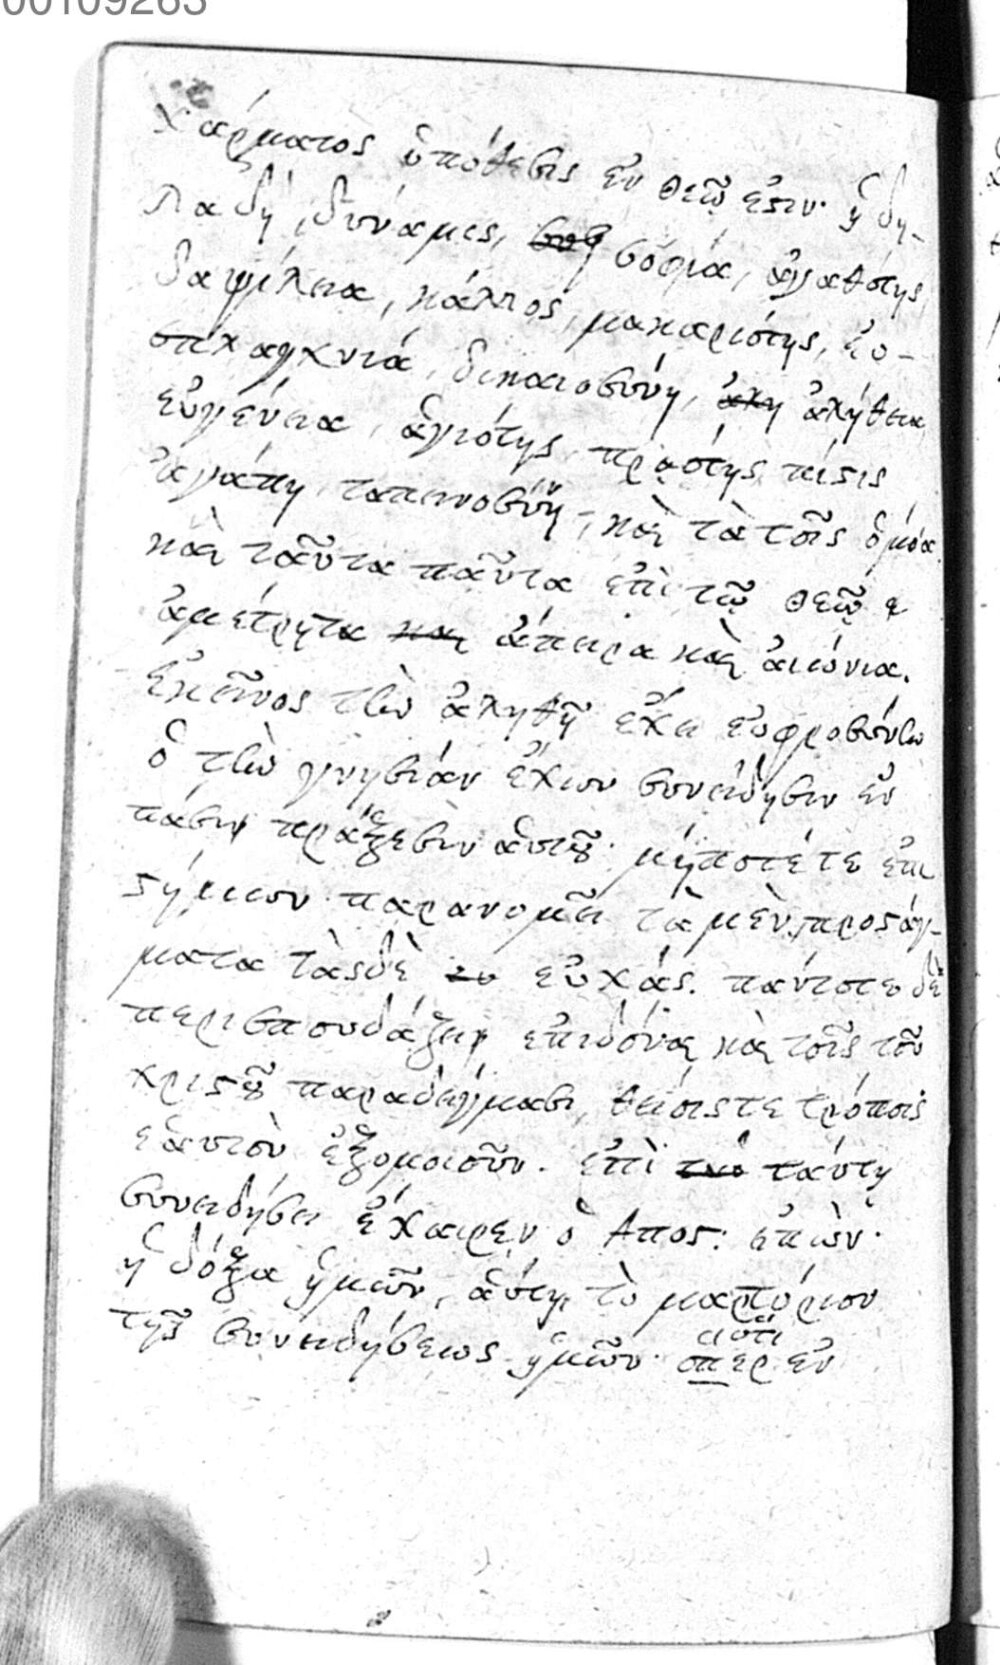 00109263
χάρματος ὑπόθεσις ἐν θεῷ ἐστιν· ἢ δη-
λαδὴ, δύναμις, σοφία, ἀγαθότης,
δαψίλεια, κάλλος, μακαριότης, εὐ-
σπλαγχνιά, δικαιοσύνη, ἀλήθεια,
εὐγένεια, ἁγιότης, πραότης, πίστις
ἀγάπη, ταπεινοσύνη, καὶ τὰ τοῖς ὁμόια.
καὶ ταῦτα πάντα ἐπὶ τῷ θεῷ
ἀμέτρητα ἄπειρα καὶ αἰώνια.
Ἐκεῖνος τὴν ἀληθῆ ἔχει εὐφροσύνην
ὁ τὴν γνησίαν ἔχων συνείδησιν ἐν
πάσιν πράξεσιν αὑτοῦ· μήποτέ τε ἐπι
στήμων παρανομεῖ τὰ μὲν προστάγ-
ματα τὰς δὲ εὐχάς. πάντοτε δὲ
περισπουδάζειν ἐπιδόναι καὶ τοῖς τοῦ
χριστοῦ παραδείγμασι, θείοις τε τρόποις
ἑαυτὸν ἐξομοιοῦν. ἐπὶ ταύτῃ
συνειδήσει ἔχαιρεν ὁ Αποσ: εἰπὼν·
ἡ δόξα ἡμῶν, αὕτη, τὸ μαρτύριον
τῆς συνειδήσεως ἡμῶν· ὅπερ ἐν